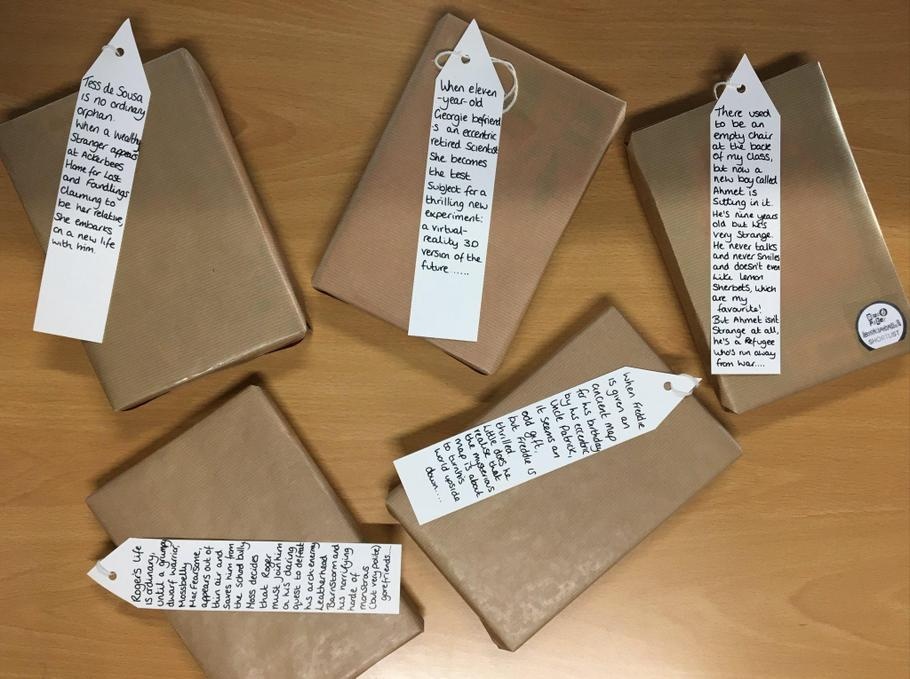 Tess de Sousa
is no ordinary
orphan.
When a wealthy
Stranger appears
at Ackerbees
Home for Lost
and Foundlings
claiming to
be her relative,
She embarks
on a new life
with him.
When eleven
-year-old
Georgie befriends
is an eccentric
retired Scientist
She becomes
the test
Subject for a
thrilling new
experiment:
a virtual-
reality 3D
version of the
future......
There used
to be an
empty chair
at the back
of my class,
but now a
new boy called
Ahmet is
Sitting in it.
He's nine years
old but he's
very Strange.
He never talks
and never smiles
and doesn't even
like lemon
Sherbets, which
are my
favourite!
But Ahmet isn't
Strange at all,
he's a Refugee
who's run away
from war....
SHORTLIST
Roger's Life
is ordinary,
until a grumpy
dwarf warrior,
Mossbelly
MacFearsome,
appears out of
thin air and
saves him from
the school bully
Moss decides
that Roger
must join him
on his daring
quest to defeat
his arch-enemy
Leatherhead
Barnstorm and
his horrifying
horde of
monstrous
(but very polite)
gorefriends....
When Freddie
is given an
ancient map
for his birthday
by his eccentric
Uncle Patrick,
it seems an
odd gift,
but Freddie is
thrilled
Little does he
realise that
the mysterious
map is about
to turn his
world upside
down....